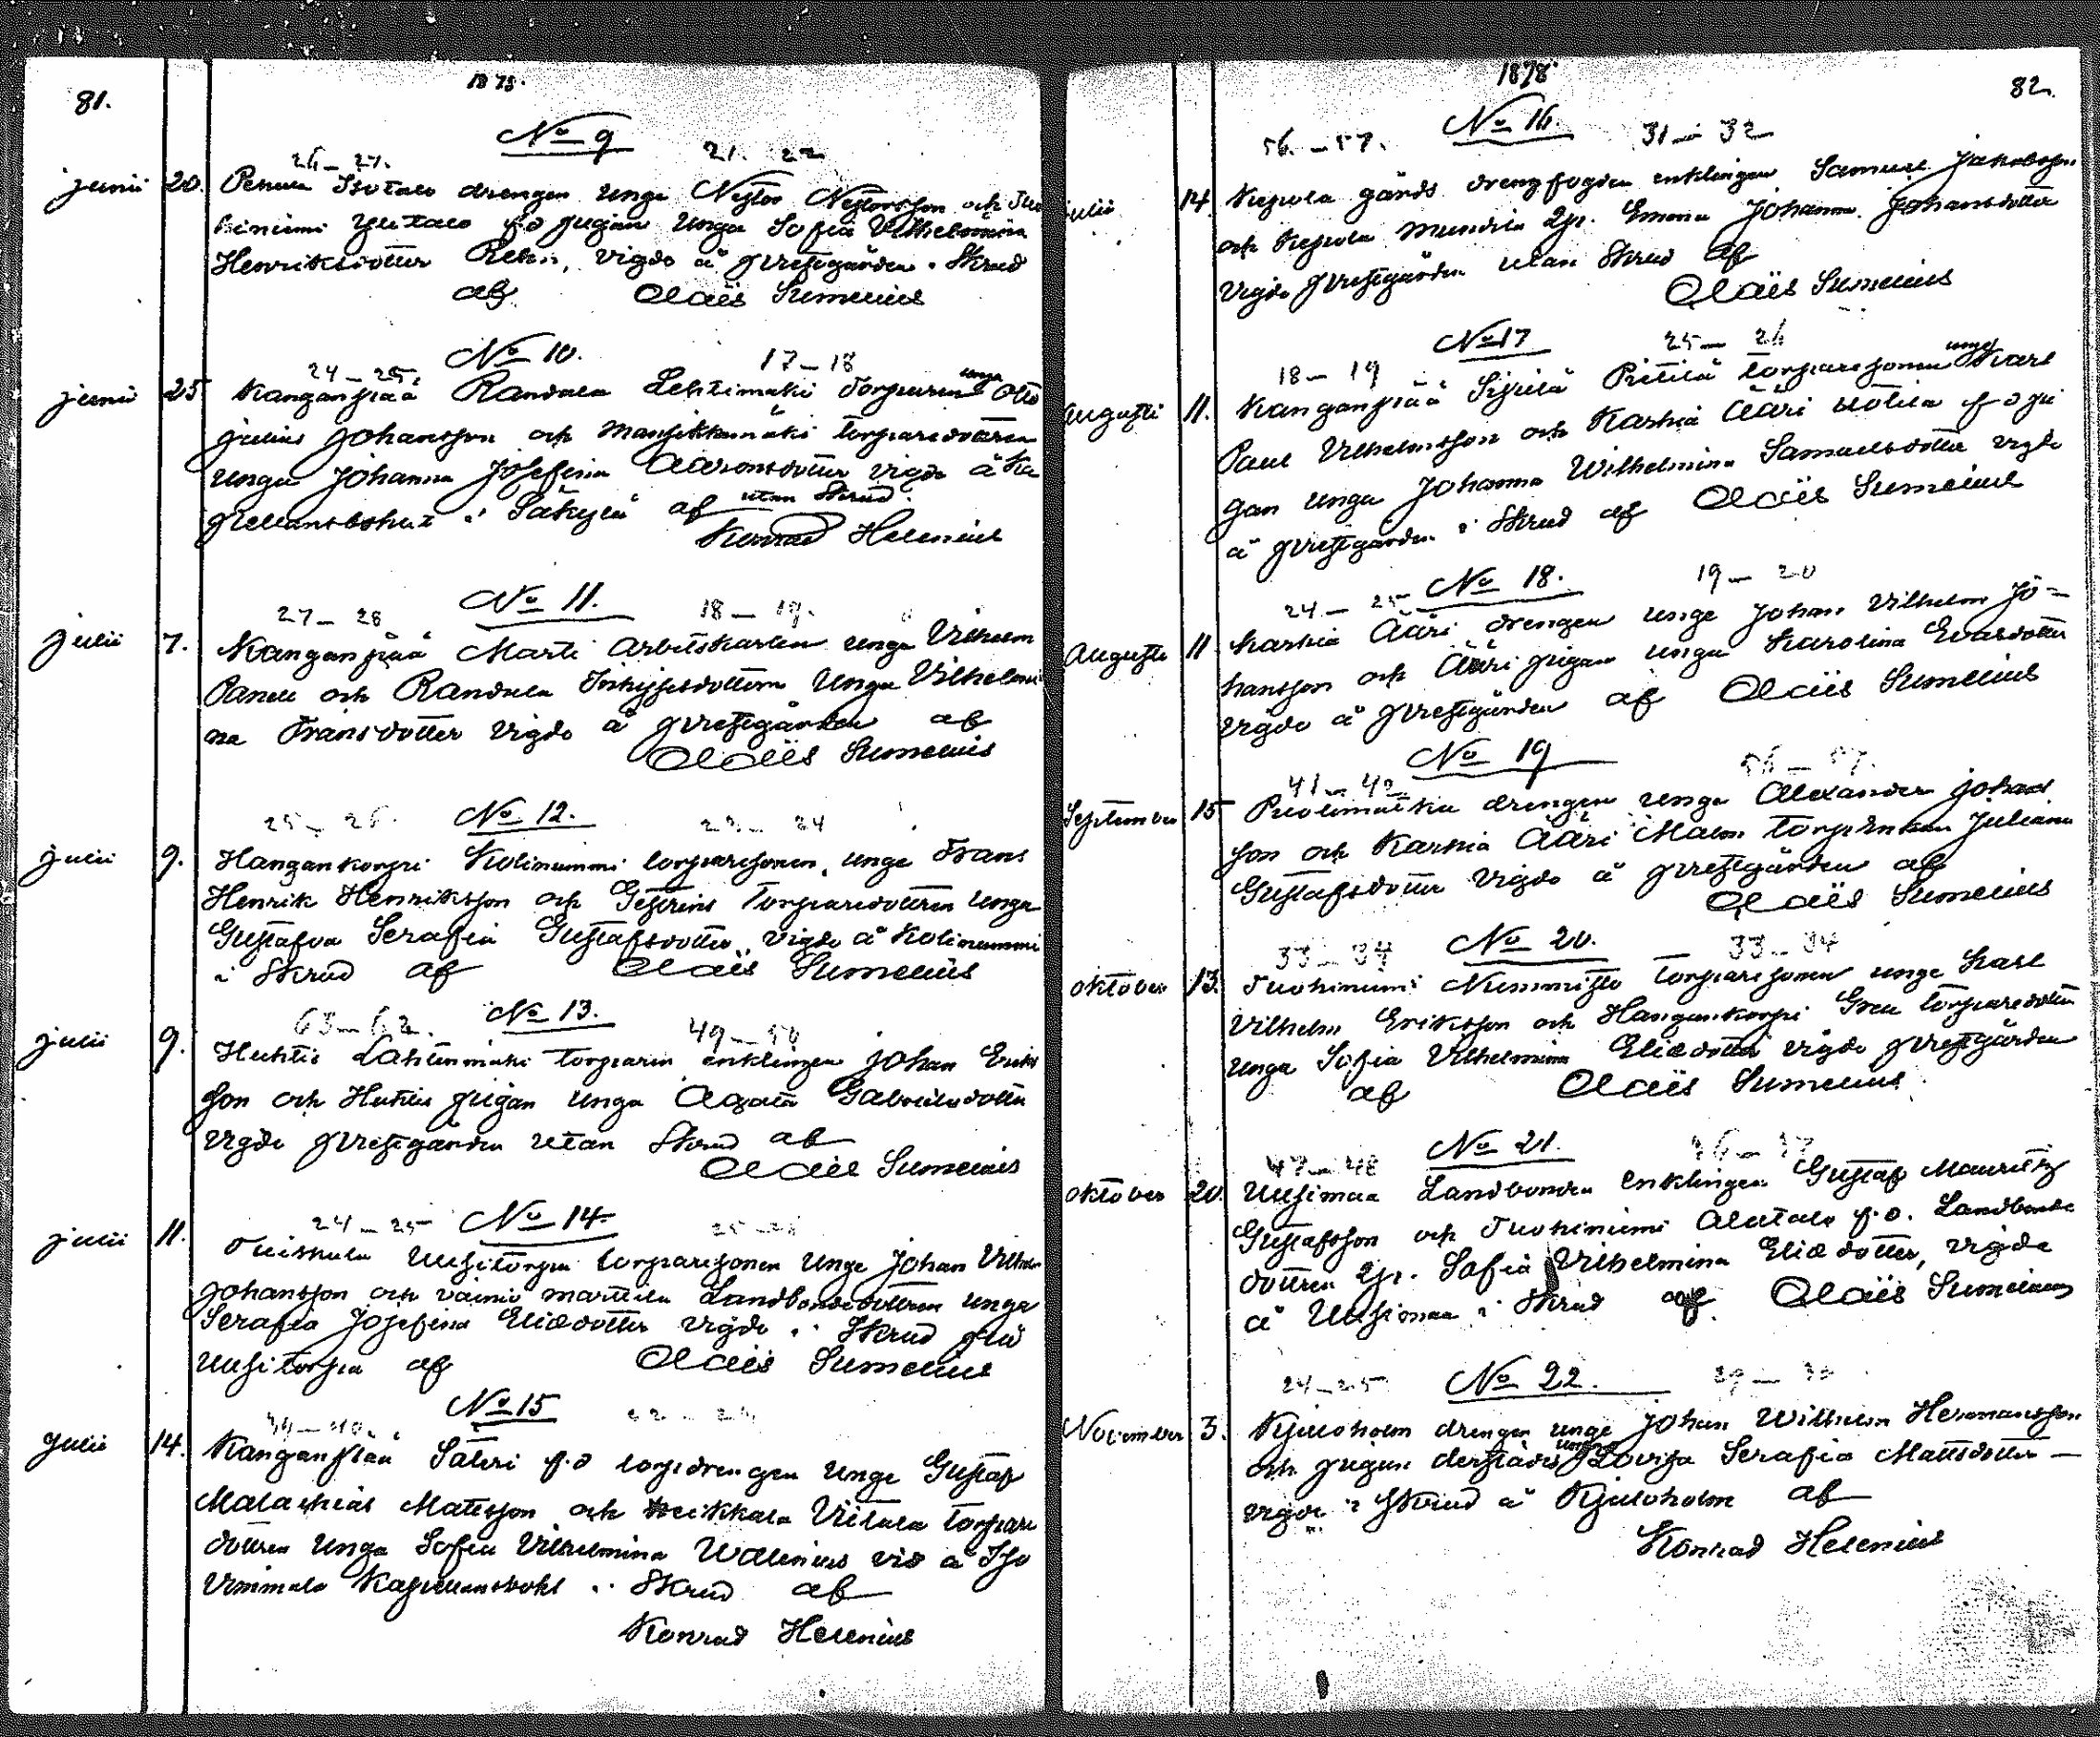 81.
1878.
No 9
26 – 27. 21. 22
junii 20. Isotalo drengen unge Nestor Nestorsson och Tuo
hiniemi f.d. pigan unga Sofia Vilhelmina
Henriksdotter Rehn, vigde å prestgården i Skrud
af Claës Sumelius
No 10.
24 – 25. 17 – 18
junii 25 Kanganpää Randala Lehtimäki Torparen unge Otto
Julius Johansson och Mansikkamäki torparedottren
unga Johanna Josefina Aaronsdotter vigde å Ka
pellansbohl i Säkylä af utan Skrud.
Konrad Helenius
No 11.
27 – 28 18 – 19.
julii 7. Kanganpää Marti Arbetskarlen unge Vilhelm
Panele och Randala Inhysesdottern Unga Vilhelmi
na Fransdotter vigde å prestgården af
Claës Sumelius
No 12.
25 – 26 23 – 24
julii 9. Hangankorpi Kolinummi torparesonen unge Frans
Henrik Henriksson och Torparedottren unga
Gustafva Serafia Gustafsdotter, vigde å Kolinummi
i Skrud af Claës Sumelius
No 13.
49 – 50
julii 9. Huhtis Lähtenmäki torparen enklingen Johan Eriks
son och Huhtis pigan unga Agata Gabrielsdotter
vigde prestgården utan Skrud af
Claës Sumelius
No 14.
24 – 25 25 – 26
julii 11. Tuiskula Uusitorpa torparesonen Unge Johan Vilhelm
Johansson och Vainio Marttila Landbondedottren unga
Serafia Josefina Eliædotter vigde i Skrud på
Uusitorpa af Claës Sumelius
No 15
39 – 40.
Julii 14. Kanganpää Säteri f.d. torpdrengen unge Gustaf
Malachias Matsson och Heikkala Viitala torpare
dottren Unga Sofia Vilhelmina Wallenius vid å Iso
Vimmala Kapellansbohl i Skrud af
Konrad Helenius
1878.
82.
No 16.
56. – 57. 31 – 32
julii 14 Kepola gårds drengfogden enklingen Samuel Jakobsson
och Kepola mundila Emma Johanna Johansdotter
vigde prestgården utan Skrud af
Claës Sumelius
No 17
18 – 19 25 – 26
Augusti 11. Kanganpää Sipilä Pietilä torparesonen unge Karl
Paul Vilhelmsson och Karhia Ääri uotila f.d. pi
gan unga Johanna Wilhelmina Samuelsdotter vigde
å prestgården i Skrud af Claës Sumelius
No 18.
24 – 25 19 – 20
Augusti 11 Karhia Ääri drengen unge Johan Vilhelm Jo=
hansson och Ääri pigan unga Karolina Evasdotter
vigde å prestgården af Claës Sumelius
No 19
41 – 42 56 – 57.
September 15 Puolimatka drengen unge Alexander Johans
son och Karhia Ääri Malm torpenkan Juliana
Gustafsdotter vigde å prestgården af
Claës Sumelius
No 20.
33 – 34 33 – 34
Oktober 13. Tuohinumi Nummisto torparesonen unge Karl
Vilhelm Eriksson och Hangankorpi torparedotter
unga Sofia Vilhelmina Eliædotter vigde prestgården
af Claës Sumelius
No 21.
47 – 48
Oktober 20. Uusimaa Landbonden Enklingen Gustaf Mauritz
Gustafsson och Tuohiniemi Alatalo f.d. Landbonde
dottren Sofia Vilhelmina Eliædotter, vigde
å Uusimaa i Skrud af Claës Sumelius
No 22.
24 – 25 29 – 30
November 3. Kjuloholm drengen unge Johan Wilhelm Hermansson
och pigan derstädes unga Lovisa Serafia Mattsdotter –
vigde i Skrud å Kjuloholm af
Konrad Helenius